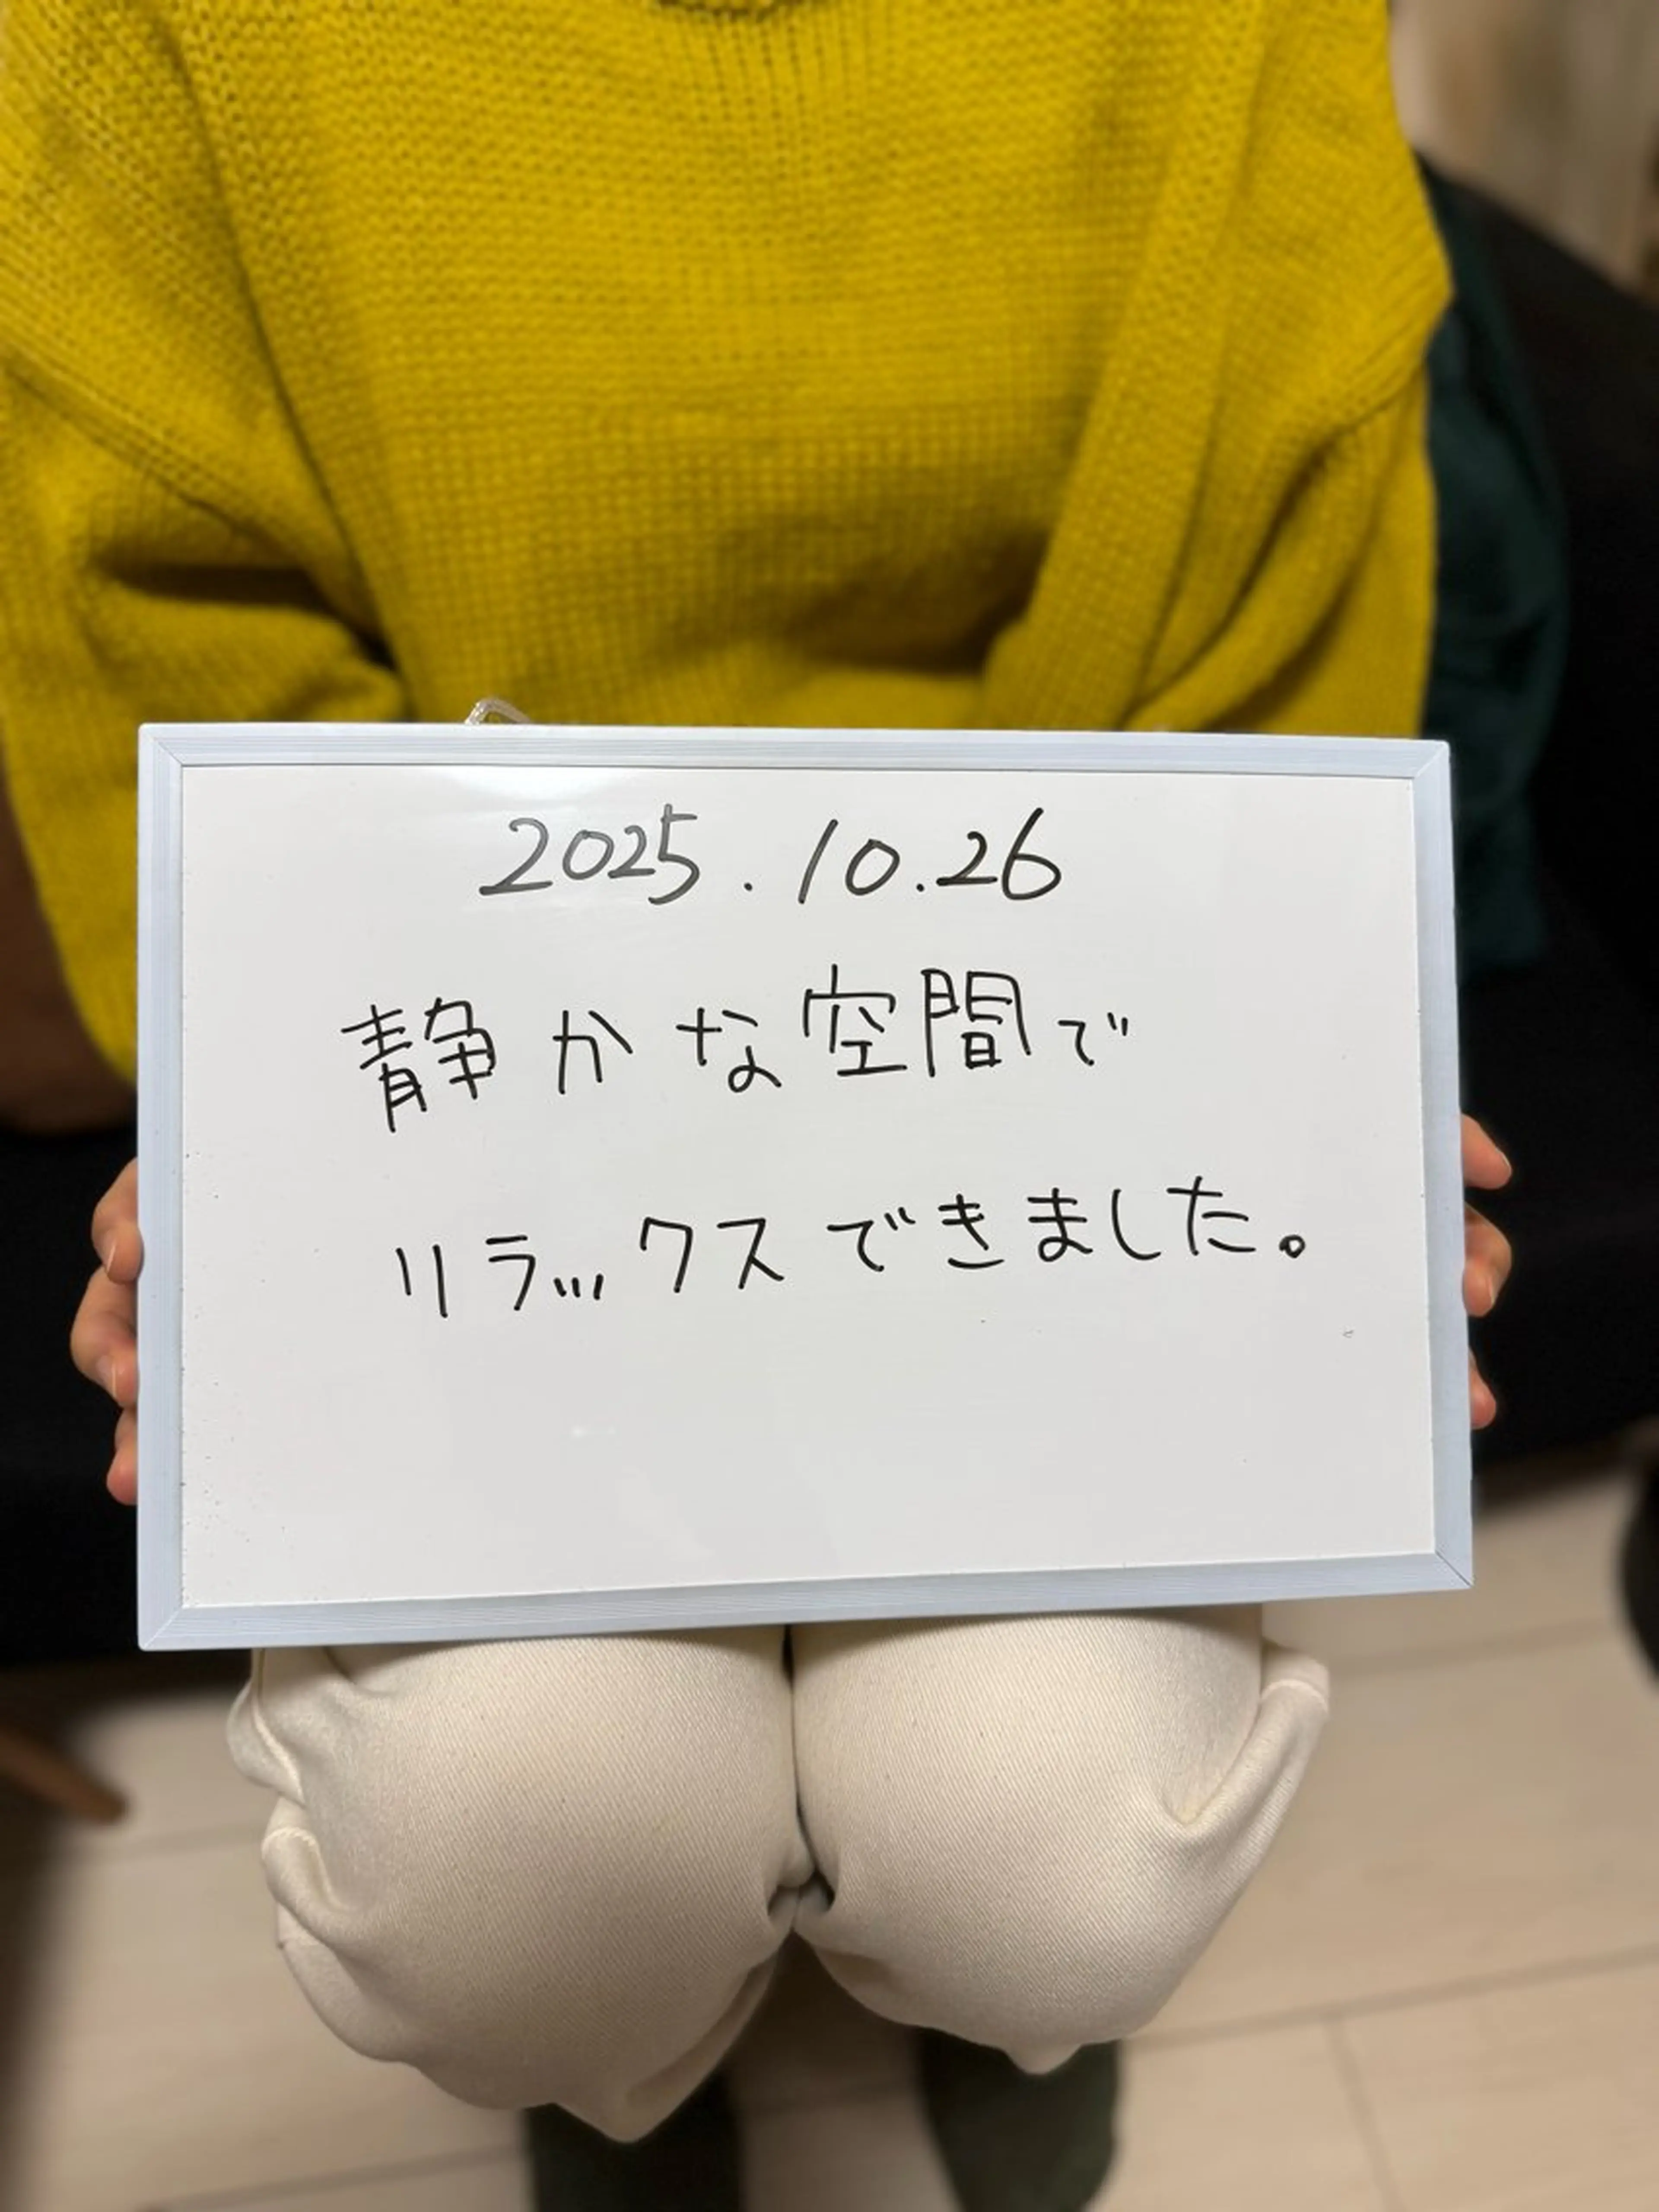 2025.10.26
静かな空間で
リラックスできました。